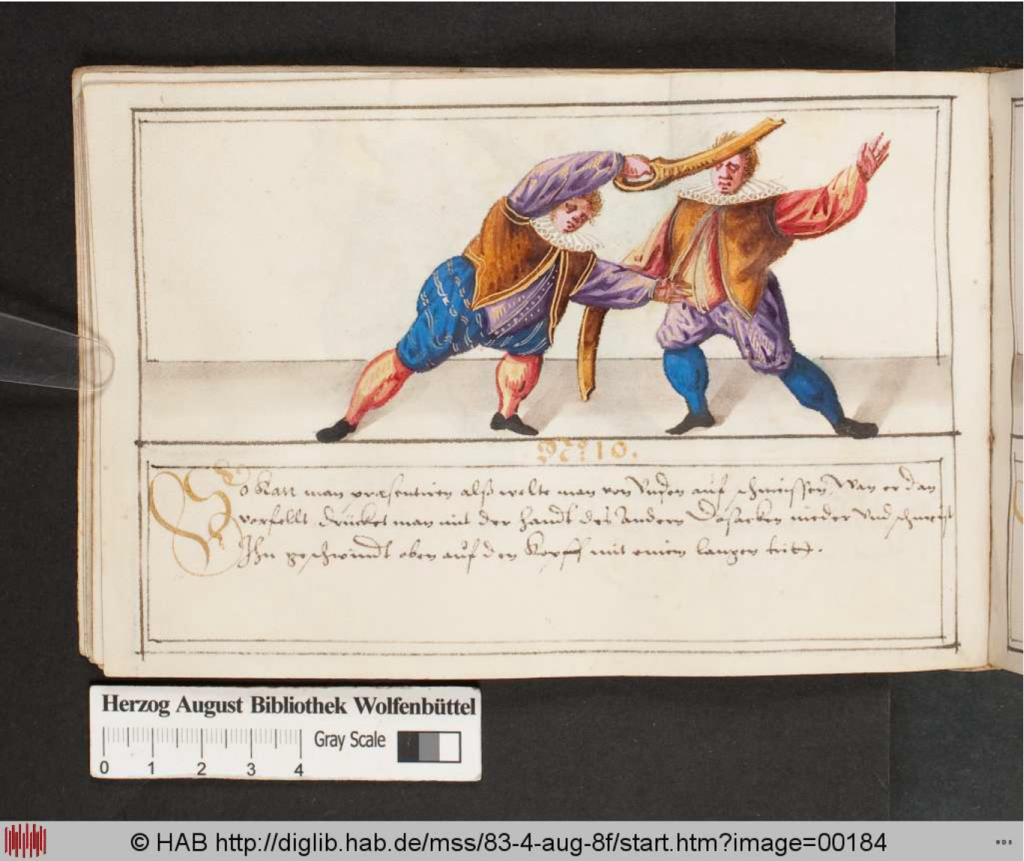 No 10.
So kan man præsentiren alß wolte man von Unden auf schmeissen, Wan er dan
vorfellt drücket man mit der handt des Andern Dosacken nieder Und schmeist
Ihn geschwindt oben auf den Kopff mit einem langen trit.
Herzog August Bibliothek Wolfenbüttel
Gray Scale
0 1 2 3 4
© HAB http://diglib.hab.de/mss/83-4-aug-8f/start.htm?image=00184